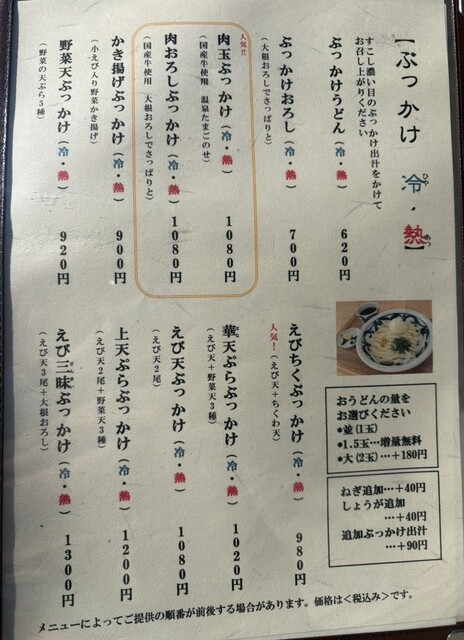 【ぶっかけ 冷・熱】
ひや
あつ
すこし濃い目のぶっかけ出汁をかけて
お召し上がりください
ぶっかけうどん(冷・熱) 620円
ぶっかけおろし(冷・熱) 700円
(大根おろしでさっぱりと)
人気!!
肉玉ぶっかけ(冷・熱) 1080円
(国産牛使用 温泉たまごのせ)
肉おろしぶっかけ(冷・熱) 1080円
(国産牛使用 大根おろしでさっぱりと)
かき揚げぶっかけ(冷・熱) 900円
(小えび入り野菜かき揚げ)
野菜天ぶっかけ(冷・熱) 920円
(野菜の天ぷら5種)
えびちくぶっかけ(冷・熱) 980円
人気!(えび天+ちくわ天)
華天ぷらぶっかけ(冷・熱) 1020円
(えび天+野菜天3種)
えび天ぶっかけ(冷・熱) 1080円
(えび天2尾)
上天ぷらぶっかけ(冷・熱) 1200円
(えび天2尾+野菜天3種)
えび三昧ぶっかけ(冷・熱) 1300円
(えび天3尾+大根おろし)
おうどんの量を
お選びください
●並(1玉)
●1.5玉…増量無料
●大(2玉)…+180円
ねぎ追加…+40円
しょうが追加
…+40円
追加ぶっかけ出汁
…+90円
メニューによってご提供の順番が前後する場合があります。価格は<税込み>です。